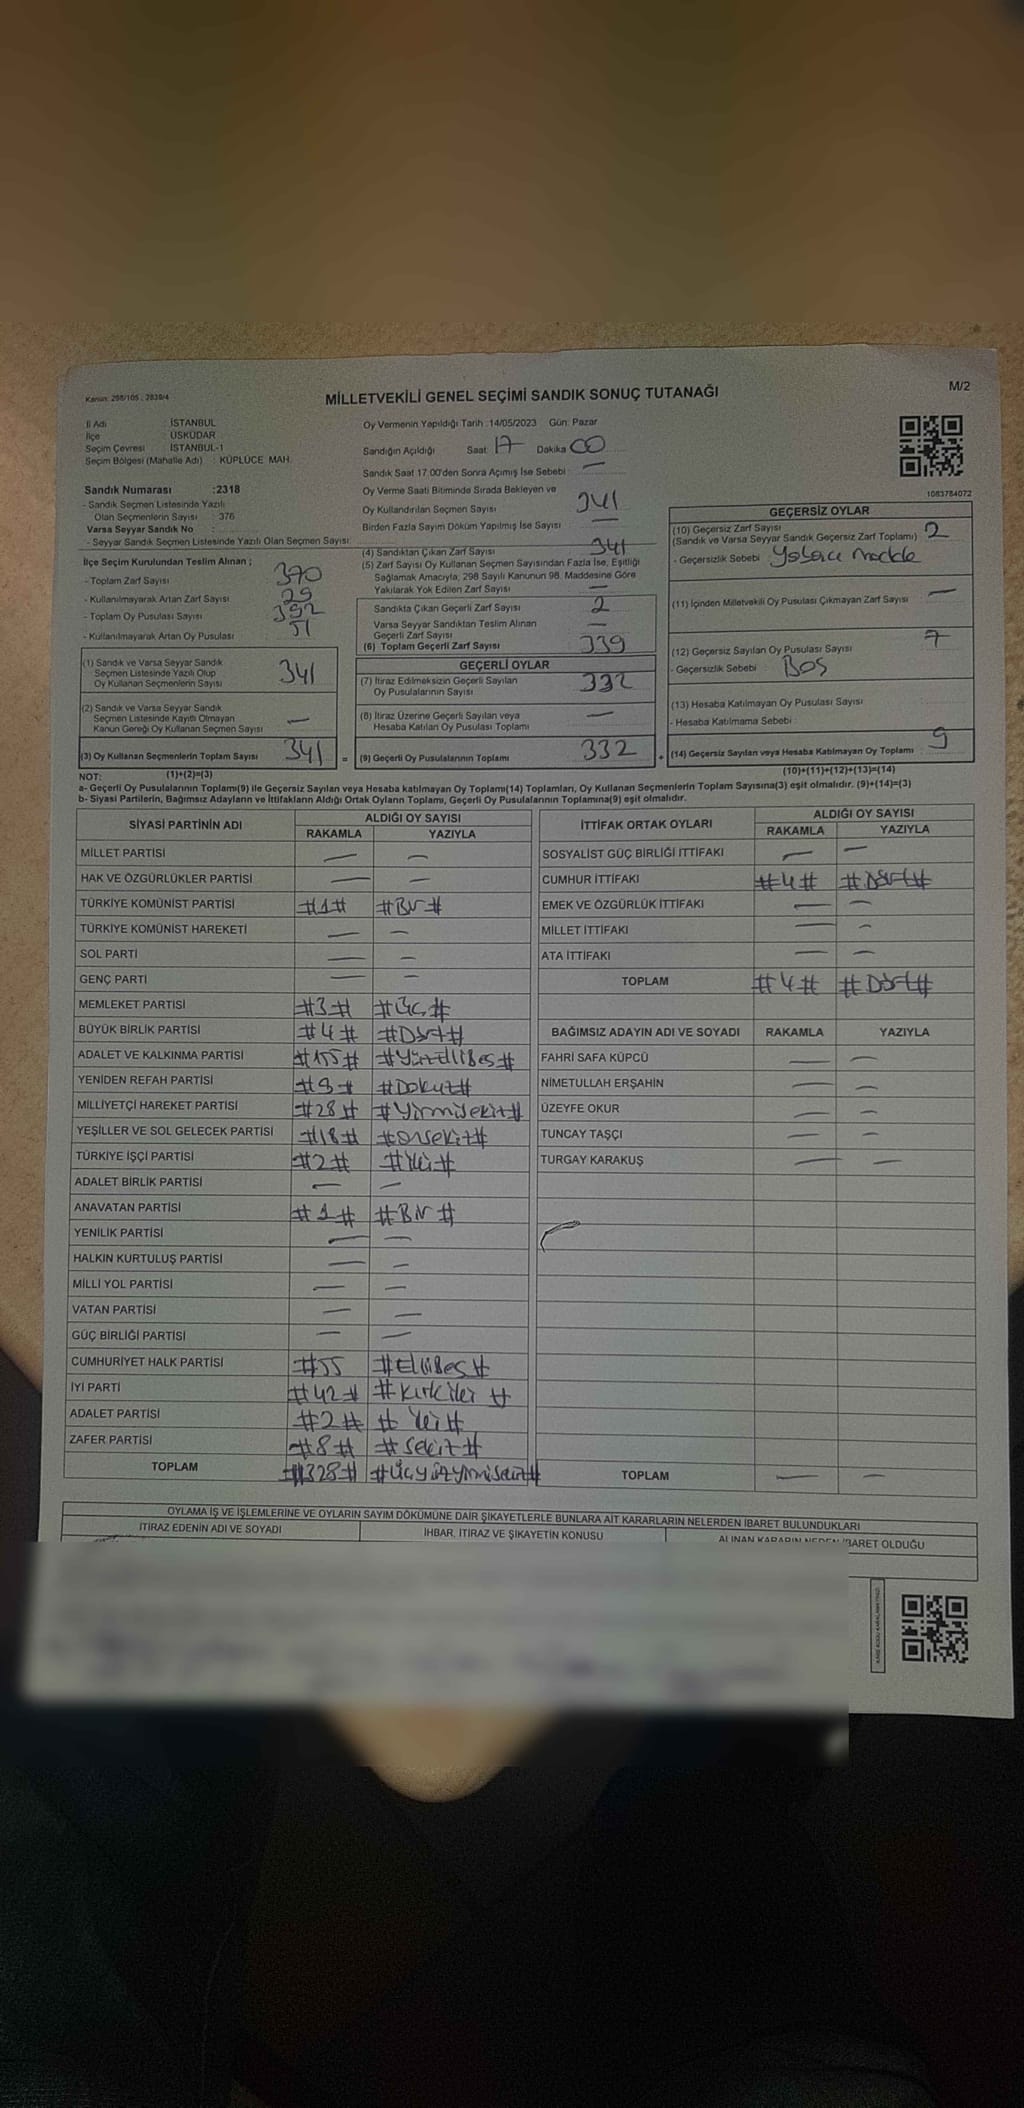 Kanun: 298/105 , 2839/4
MİLLETVEKİLİ GENEL SEÇİMİ SANDIK SONUÇ TUTANAĞI
M/2
İl Adı : İSTANBUL
İlçe : ÜSKÜDAR
Seçim Çevresi : İSTANBUL-1
Seçim Bölgesi (Mahalle Adı) : KÜPLÜCE MAH.
Sandık Numarası :2318
- Sandık Seçmen Listesinde Yazılı
Olan Seçmenlerin Sayısı : 376
Varsa Seyyar Sandık No :
- Seyyar Sandık Seçmen Listesinde Yazılı Olan Seçmen Sayısı:
İlçe Seçim Kurulundan Teslim Alınan ;
- Toplam Zarf Sayısı 370
- Kullanılmayarak Artan Zarf Sayısı 29
- Toplam Oy Pusulası Sayısı 392
- Kullanılmayarak Artan Oy Pusulası 51
(1) Sandık ve Varsa Seyyar Sandık
Seçmen Listesinde Yazılı Olup
Oy Kullanan Seçmenlerin Sayısı 341
(2) Sandık ve Varsa Seyyar Sandık
Seçmen Listesinde Kayıtlı Olmayan
Kanun Gereği Oy Kullanan Seçmen Sayısı —
(3) Oy Kullanan Seçmenlerin Toplam Sayısı 341 =
Oy Vermenin Yapıldığı Tarih :14/05/2023 Gün: Pazar
Sandığın Açıldığı Saat: 17 Dakika 00
Sandık Saat 17.00'den Sonra Açımış İse Sebebi : —
Oy Verme Saati Bitiminde Sırada Bekleyen ve
Oy Kullandırılan Seçmen Sayısı 341
Birden Fazla Sayım Döküm Yapılmış İse Sayısı —
(4) Sandıktan Çıkan Zarf Sayısı 341
(5) Zarf Sayısı Oy Kullanan Seçmen Sayısından Fazla İse, Eşitliği
Sağlamak Amacıyla, 298 Sayılı Kanunun 98. Maddesine Göre
Yakılarak Yok Edilen Zarf Sayısı —
Sandıkta Çıkan Geçerli Zarf Sayısı 2
Varsa Seyyar Sandıktan Teslim Alınan
Geçerli Zarf Sayısı —
(6) Toplam Geçerli Zarf Sayısı 339
GEÇERLİ OYLAR
(7) İtiraz Edilmeksizin Geçerli Sayılan
Oy Pusulalarının Sayısı 332
(8) İtiraz Üzerine Geçerli Sayılan veya
Hesaba Katılan Oy Pusulası Toplamı —
(9) Geçerli Oy Pusulalarının Toplamı 332 +
1083784072
GEÇERSİZ OYLAR
(10) Geçersiz Zarf Sayısı 2
(Sandık ve Varsa Seyyar Sandık Geçersiz Zarf Toplamı)
- Geçersizlik Sebebi : Yabancı madde
(11) İçinden Milletvekili Oy Pusulası Çıkmayan Zarf Sayısı —
(12) Geçersiz Sayılan Oy Pusulası Sayısı 7
- Geçersizlik Sebebi : Boş
(13) Hesaba Katılmayan Oy Pusulası Sayısı
- Hesaba Katılmama Sebebi :
(14) Geçersiz Sayılan veya Hesaba Katılmayan Oy Toplamı 9
NOT: (1)+(2)=(3) (10)+(11)+(12)+(13)=(14)
a- Geçerli Oy Pusulalarının Toplamı(9) ile Geçersiz Sayılan veya Hesaba katılmayan Oy Toplamı(14) Toplamları, Oy Kullanan Seçmenlerin Toplam Sayısına(3) eşit olmalıdır. (9)+(14)=(3)
b- Siyasi Partilerin, Bağımsız Adayların ve İttifakların Aldığı Ortak Oyların Toplamı, Geçerli Oy Pusulalarının Toplamına(9) eşit olmalıdır.
SİYASİ PARTİNİN ADI ALDIĞI OY SAYISI
RAKAMLA YAZIYLA
MİLLET PARTİSİ — —
HAK VE ÖZGÜRLÜKLER PARTİSİ — —
TÜRKİYE KOMÜNİST PARTİSİ #1# #Bir#
TÜRKİYE KOMÜNİST HAREKETİ — —
SOL PARTİ — —
GENÇ PARTİ — —
MEMLEKET PARTİSİ #3# #Üç#
BÜYÜK BİRLİK PARTİSİ #4# #Dört#
ADALET VE KALKINMA PARTİSİ #155# #Yüzellibeş#
YENİDEN REFAH PARTİSİ #9# #Dokuz#
MİLLİYETÇİ HAREKET PARTİSİ #28# #Yirmisekiz#
YEŞİLLER VE SOL GELECEK PARTİSİ #18# #onsekiz#
TÜRKİYE İŞÇİ PARTİSİ #2# #iki#
ADALET BİRLİK PARTİSİ — —
ANAVATAN PARTİSİ #1# #Bir#
YENİLİK PARTİSİ — —
HALKIN KURTULUŞ PARTİSİ — —
MİLLİ YOL PARTİSİ — —
VATAN PARTİSİ — —
GÜÇ BİRLİĞİ PARTİSİ — —
CUMHURİYET HALK PARTİSİ #55 #Ellibeş#
İYİ PARTİ #42# #kırkiki#
ADALET PARTİSİ #2# #iki#
ZAFER PARTİSİ #8# #sekiz#
TOPLAM #328# #Üçyüzyirmisekiz#
İTTİFAK ORTAK OYLARI ALDIĞI OY SAYISI
RAKAMLA YAZIYLA
SOSYALİST GÜÇ BİRLİĞİ İTTİFAKI — —
CUMHUR İTTİFAKI #4# #Dört#
EMEK VE ÖZGÜRLÜK İTTİFAKI — —
MİLLET İTTİFAKI — —
ATA İTTİFAKI — —
TOPLAM #4# #Dört#
BAĞIMSIZ ADAYIN ADI VE SOYADI RAKAMLA YAZIYLA
FAHRİ SAFA KÜPCÜ — —
NİMETULLAH ERŞAHİN — —
ÜZEYFE OKUR — —
TUNCAY TAŞÇI — —
TURGAY KARAKUŞ — —
TOPLAM — —
OYLAMA İŞ VE İŞLEMLERİNE VE OYLARIN SAYIM DÖKÜMÜNE DAİR ŞİKAYETLERLE BUNLARA AİT KARARLARIN NELERDEN İBARET BULUNDUKLARI
İTİRAZ EDENİN ADI VE SOYADI İHBAR, İTİRAZ VE ŞİKAYETİN KONUSU ALINAN KARARIN NEDEN İBARET OLDUĞU